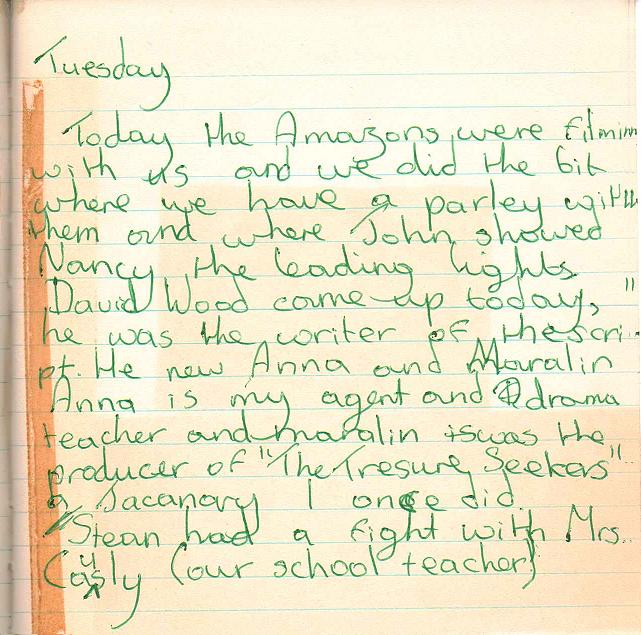 Tuesday
Today the Amazons were filmin
with us and we did the bit
where we have a parley with
them and where John showed
Nancy the leading lights
David Wood came up today, "
he was the writer of the scri..
pt. He new Anna and Maralin
Anna is my agent and drama
teacher and maralin was the
producer of "The Tresure Seekers"
a Sacanary I once did.
Stean had a fight with Mrs..
Causly (our school teacher)